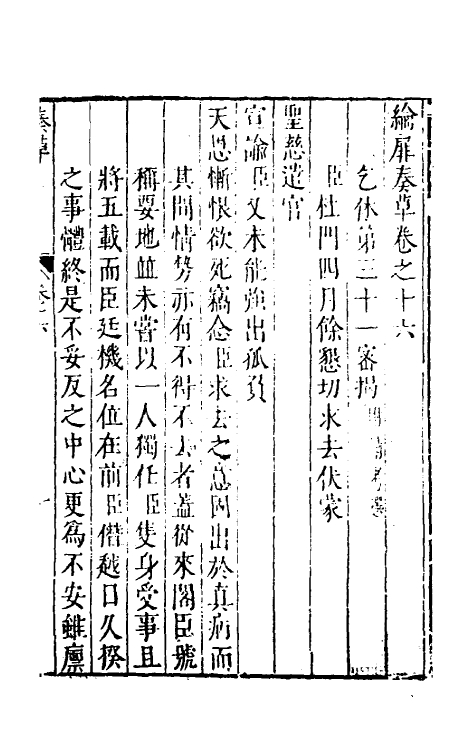 綸扉奏草卷之十六
乞休第三十一密揭
臣杜門四月餘懇切求去伏蒙
聖慈遣官
宣諭臣又未能強出孤負
天恩慚恨欲死竊念臣求去之意固出於真病而
其間情勢亦有不得不去者蓋從來閣臣號
稱要地並未嘗以一人獨任臣隻身受事且
將五載而臣廷機名位在前臣僭越日久揆
之事體終是不妥反之中心更為不安雖稟
奏草
卷十六
一